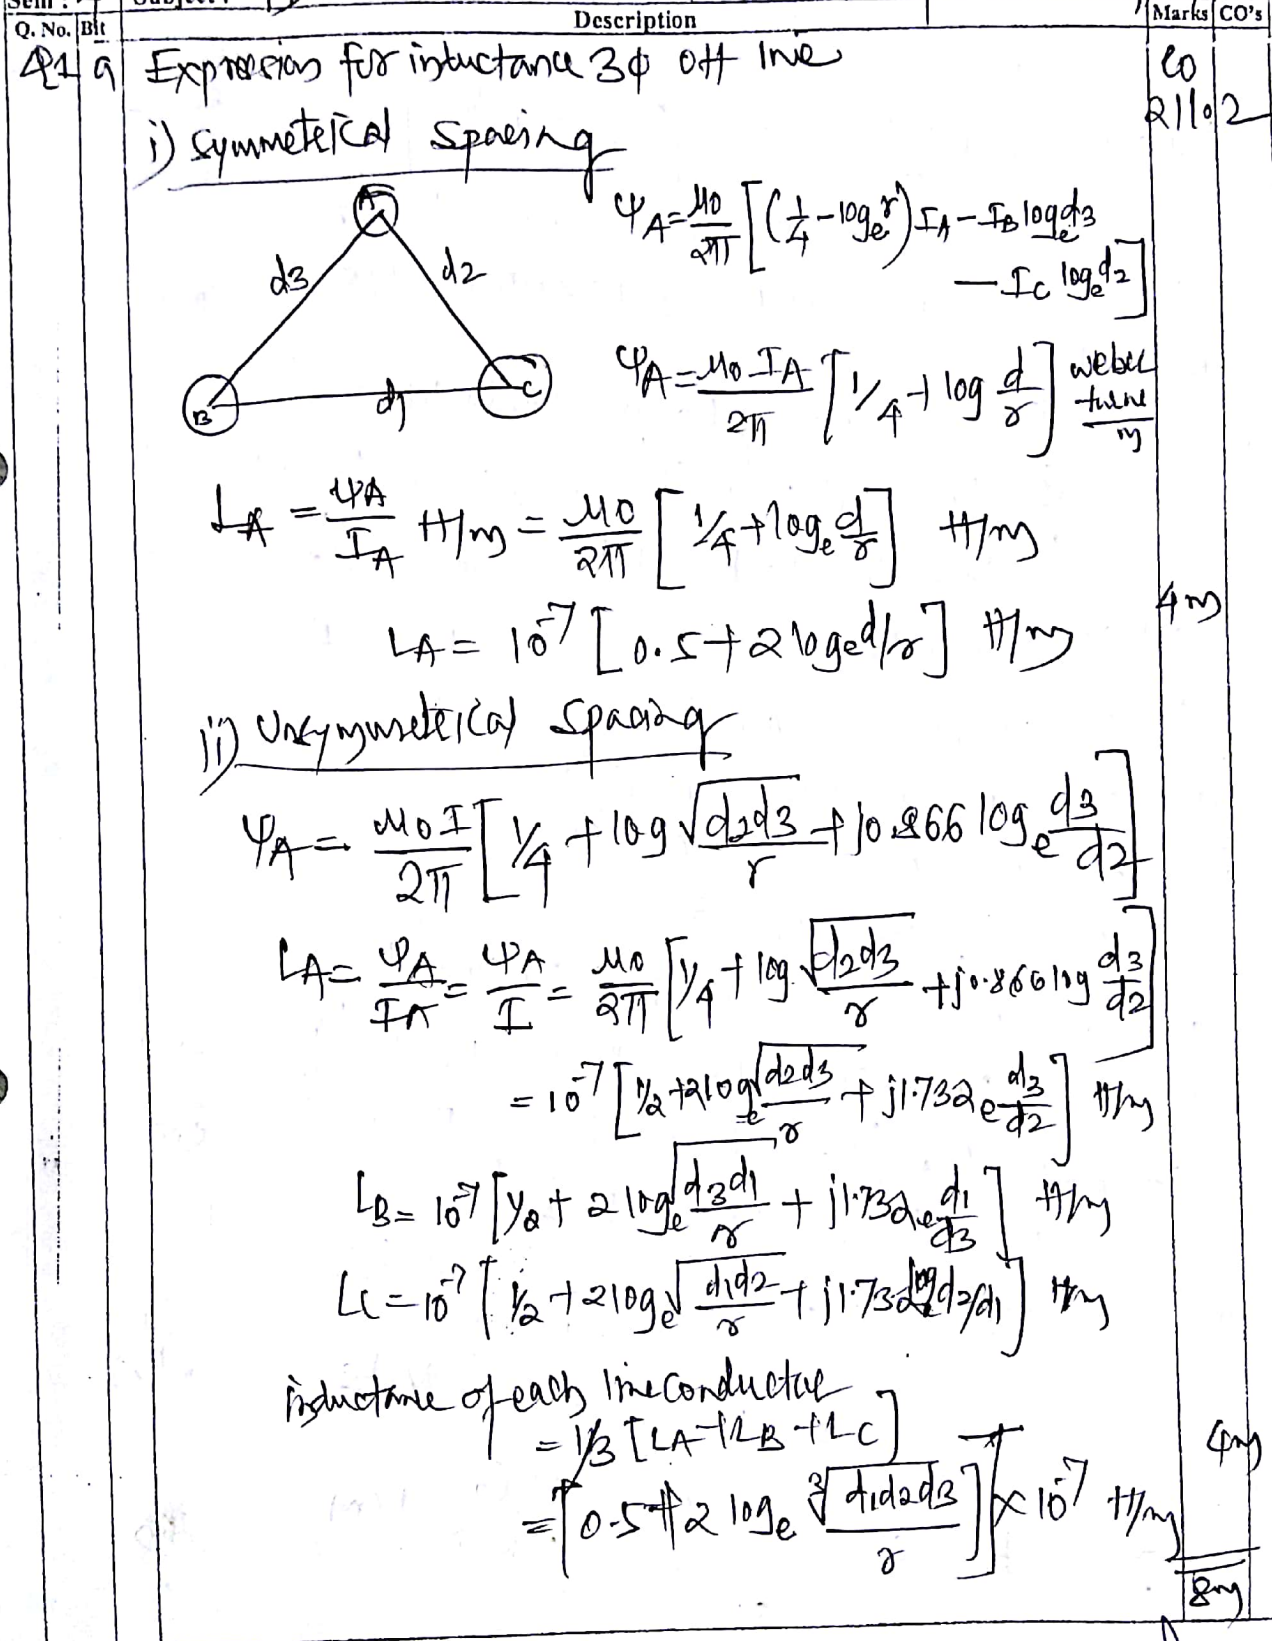 Q. No. Bit Description Marks CO's
Q1 a Expression for inductance 3φ OH line CO
i) Symmetrical Spacing 2110.2
A
d3 d2
B d1 C
ΨA = μ0/2π [(1/4 - loge r) IA - IB loge d3
- Ic loge d2]
ΨA = μ0 IA/2π [1/4 + log d/r] weber turns/m
LA = ΨA/IA H/m = μ0/2π [1/4 + loge d/r] H/m
LA = 10^-7 [0.5 + 2 loge d/r] H/m 4m
ii) Unsymmetrical Spacing
ΨA = μ0 I/2π [1/4 + log √d2d3/r + j0.866 loge d3/d2]
LA = ΨA/IA = ΨA/I = μ0/2π [1/4 + log √d2d3/r + j0.866 log d3/d2]
= 10^-7 [1/2 + 2 loge √d2d3/r + j1.732 e d3/d2] H/m
LB = 10^-7 [1/2 + 2 loge √d3d1/r + j1.732 e d1/d3] H/m
LC = 10^-7 [1/2 + 2 loge √d1d2/r + j1.732 loge d2/d1] H/m
inductance of each line conductor
= 1/3 [LA + LB + LC] 4m
= [0.5 + 2 loge ∛d1d2d3/r] × 10^-7 H/m
8m